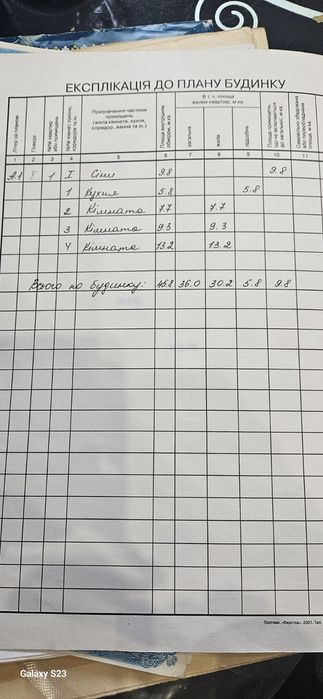 ЕКСПЛІКАЦІЯ ДО ПЛАНУ БУДИНКУ
Літер за планом
Поверх
№№ квартир або приміщень
№№ кімнат, кухонь, коридорів та ін.
Призначення частини приміщень (жила кімната, кухня, коридор, ванна та ін.)
Площа внутрішнім обміром, м кв.
В т. ч. площа жилих квартир, м кв.
загальна
жила
підсобна
Площа приміщень, що не включається до загальної, м кв.
Самовільно збудована або переобладнана площа, м кв.
1 2 3 4 5 6 7 8 9 10 11
А1 I 1 I Сіни 9.8 9.8
1 Кухня 5.8 5.8
2 Кімната 7.7 7.7
3 Кімната 9.3 9.3
4 Кімната 13.2 13.2
Всього по будинку: 45.8 36.0 30.2 5.8 9.8
Полтава. «Верстка». 2001. Тел.
Galaxy S23